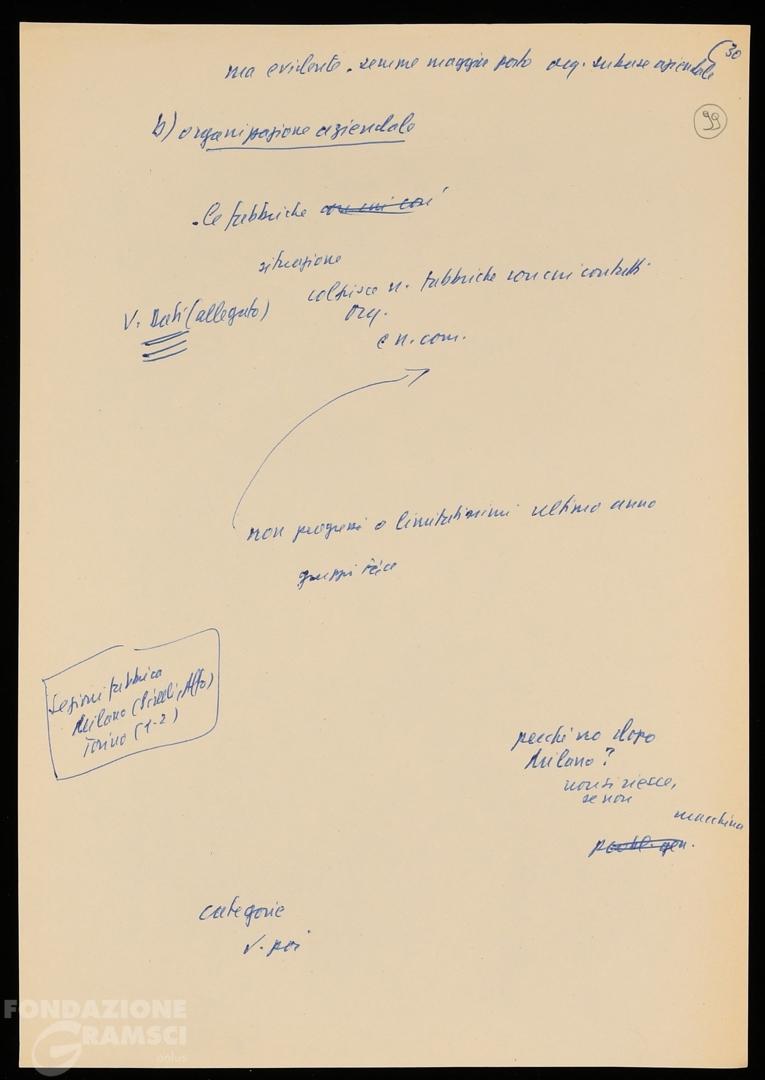 (30
ma evidente. semme maggior parte org. su base aziendale
99
b) organizzazione aziendale
- Le fabbriche
situazione
colpisce n. fabbriche con cui contatti
V. Dati (allegato)
org.
e n. com.
non progressi o limitatissimi ultimo anno
gruppi
Sezioni fabbrica
Milano (Pirelli, Alfa)
Torino (1-2)
perché no dopo
Milano?
non si riesce,
se non
macchina
probl. gen.
categorie
V. poi
FONDAZIONE
GRAMSCI
onlus